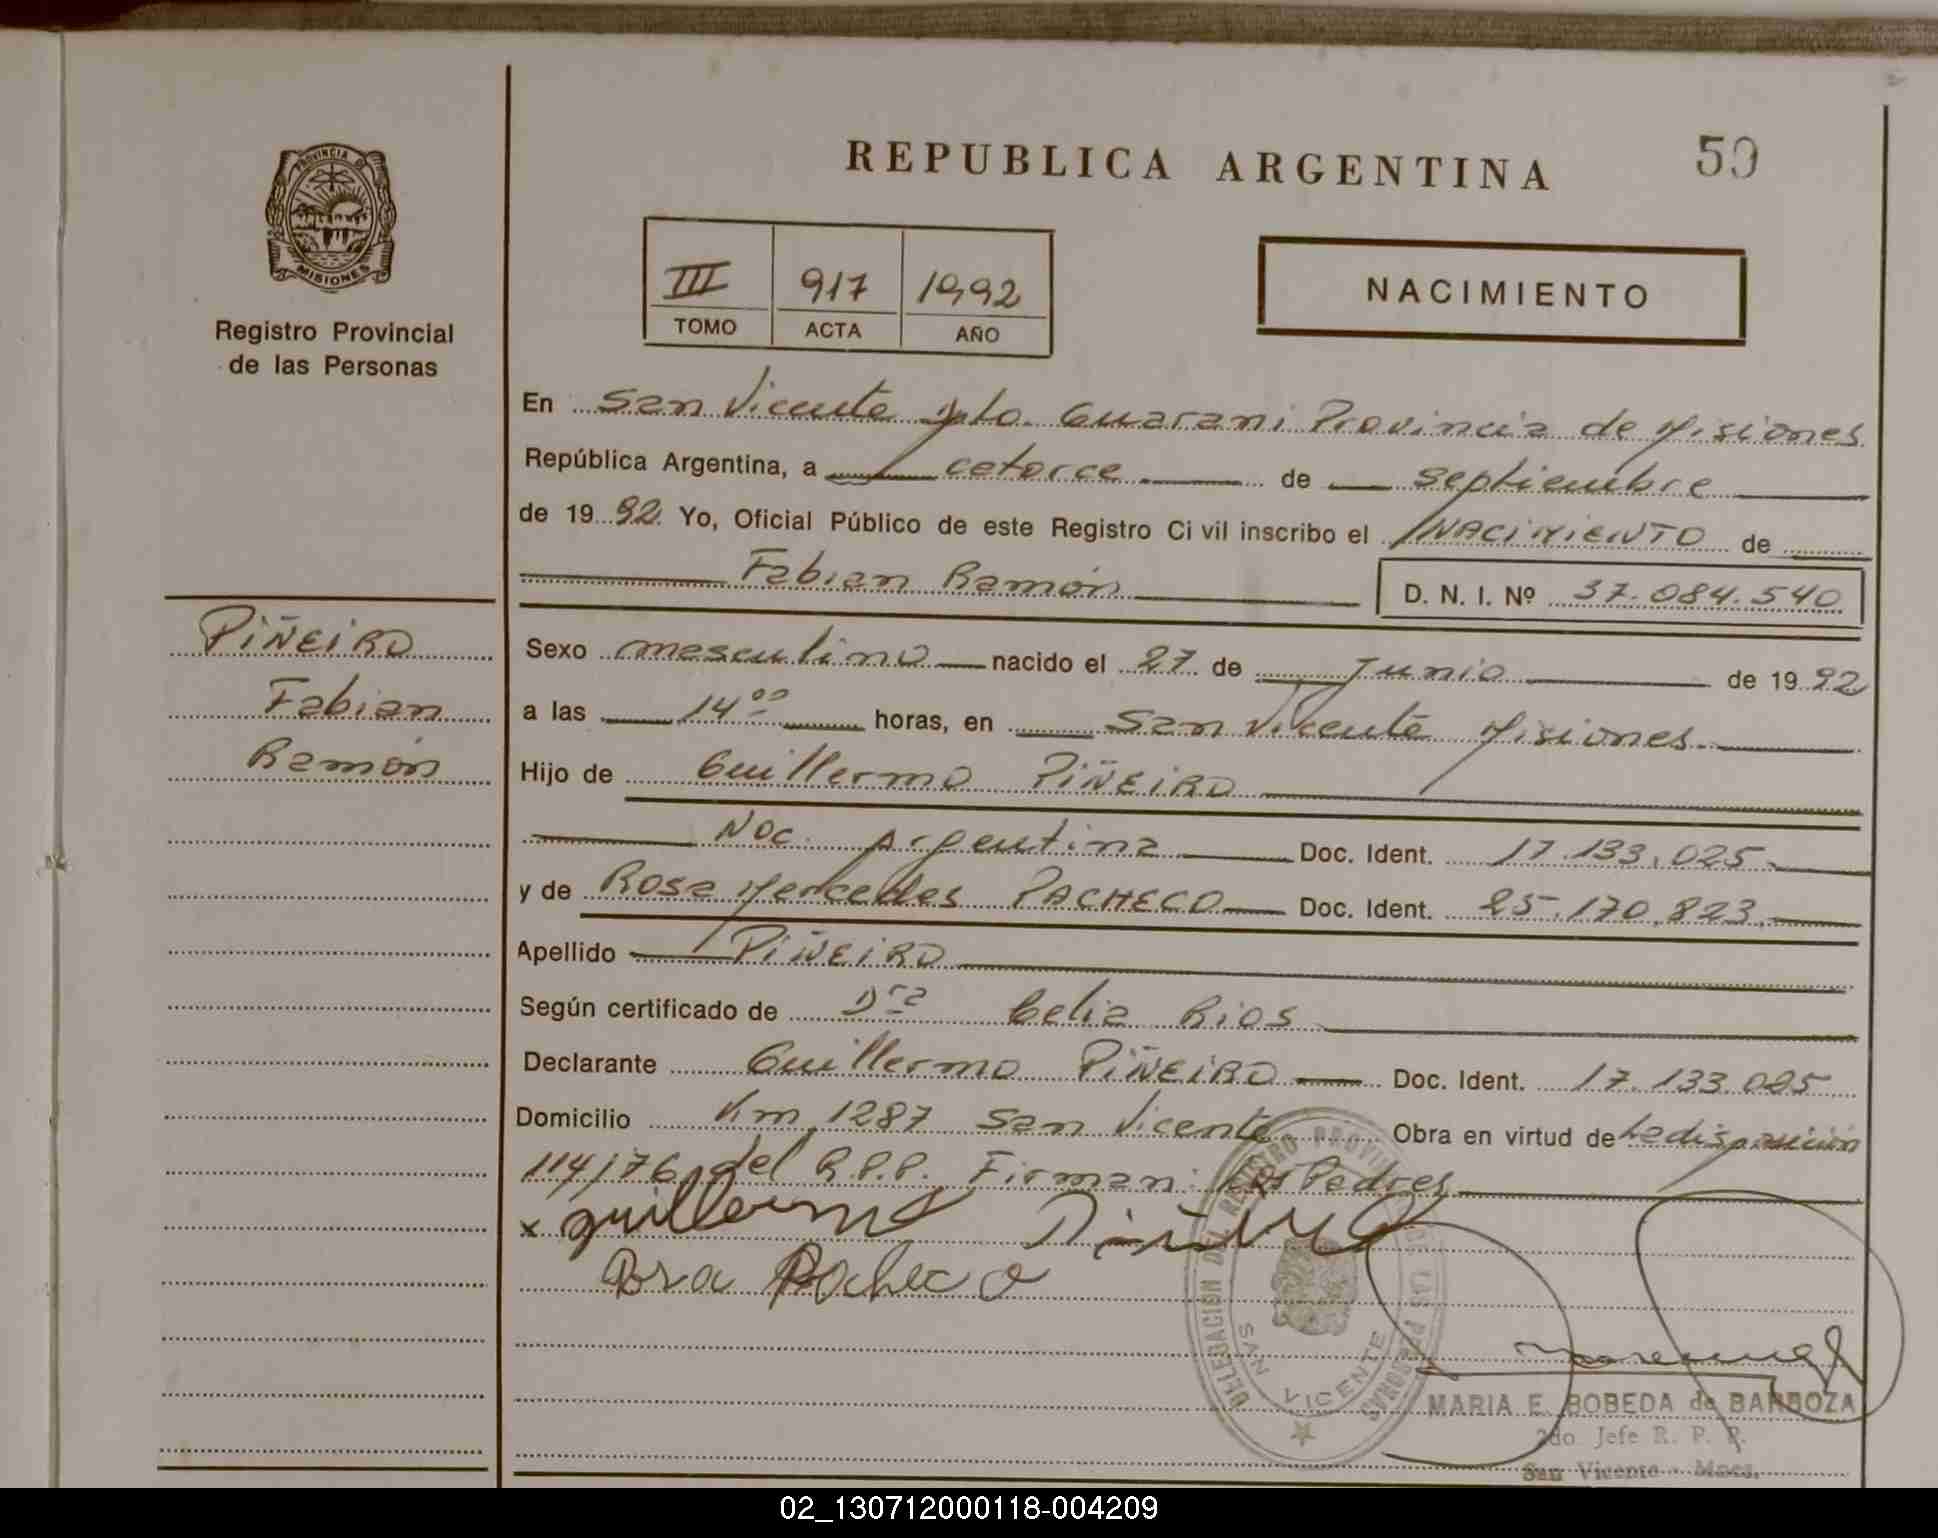 REPUBLICA ARGENTINA
59
PROVINCIA DE
MISIONES
Registro Provincial
de las Personas
III 917 1992
TOMO ACTA AÑO
NACIMIENTO
En San Vicente Dpto. Guarani Provincia de Misiones
República Argentina, a catorce de septiembre
de 1992 Yo, Oficial Público de este Registro Civil inscribo el NACIMIENTO de
Fabian Ramón D. N. I. Nº 37.084.540
PIÑEIRO
Fabian
Ramón
Sexo masculino nacido el 27 de Junio de 1992
a las 14⁰⁰ horas, en San Vicente Misiones
Hijo de Guillermo PIÑEIRO
Nac. Argentina Doc. Ident. 17.133.025
y de Rosa Mercedes PACHECO Doc. Ident. 25.170.823
Apellido PIÑEIRO
Según certificado de Dra Celia Rios
Declarante Guillermo PIÑEIRO Doc. Ident. 17.133.025
Domicilio Km 1287 San Vicente Obra en virtud de La disposición
114/76 del R.P.P. Firman: Los Padres
x guillermo Piñeiro
Pacheco
DELEGACION DEL REGISTRO PROVINCIAL DE LAS PERSONAS
SAN VICENTE
MARIA E. BOBEDA de BARBOZA
2do Jefe R. P. P.
San Vicente - Mnes.
02_130712000118-004209